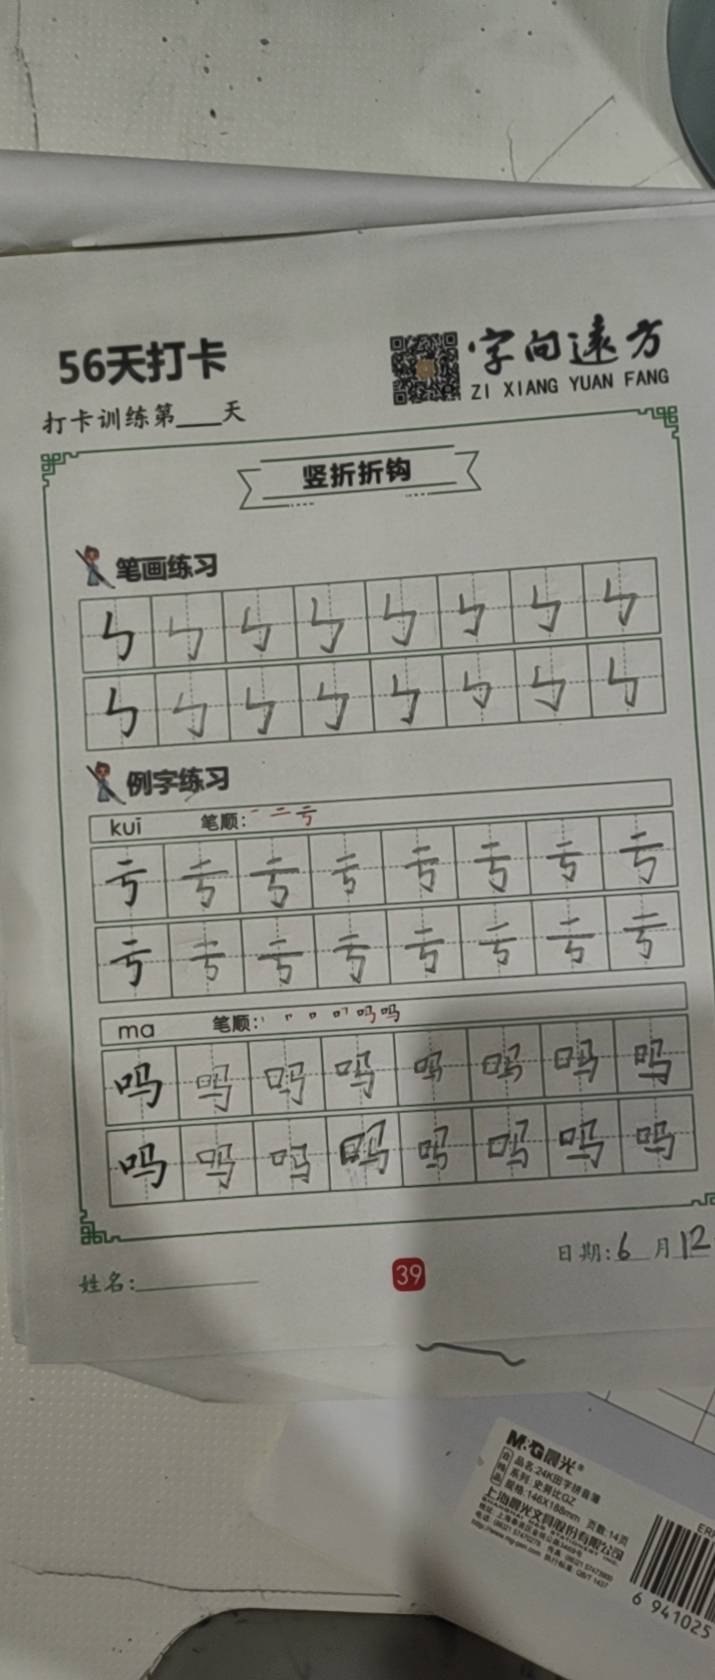 56天打卡
字向遠方
ZI XIANG YUAN FANG
打卡训练第___天
竖折折钩
笔画练习
ㄣ ㄣ ㄣ ㄣ ㄣ ㄣ ㄣ ㄣ
ㄣ ㄣ ㄣ ㄣ ㄣ ㄣ ㄣ ㄣ
例字练习
kui 笔顺: 一 二 亏
亏 亏 亏 亏 亏 亏 亏 亏
亏 亏 亏 亏 亏 亏 亏 亏
ma 笔顺: 丨 口 吗 吗
吗 吗 吗 吗 吗 吗 吗 吗
吗 吗 吗 吗 吗 吗 吗 吗
日期:6月12
姓名:
39
M&G晨光®
品名:24K田字拼音簿
系列:史努比GZ
规格:146X188mm 页数:14页
上海晨光文具股份有限公司
6 941025